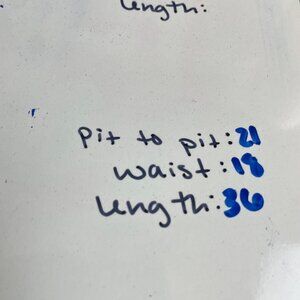 length:
pit to pit:21
waist:18
length:36